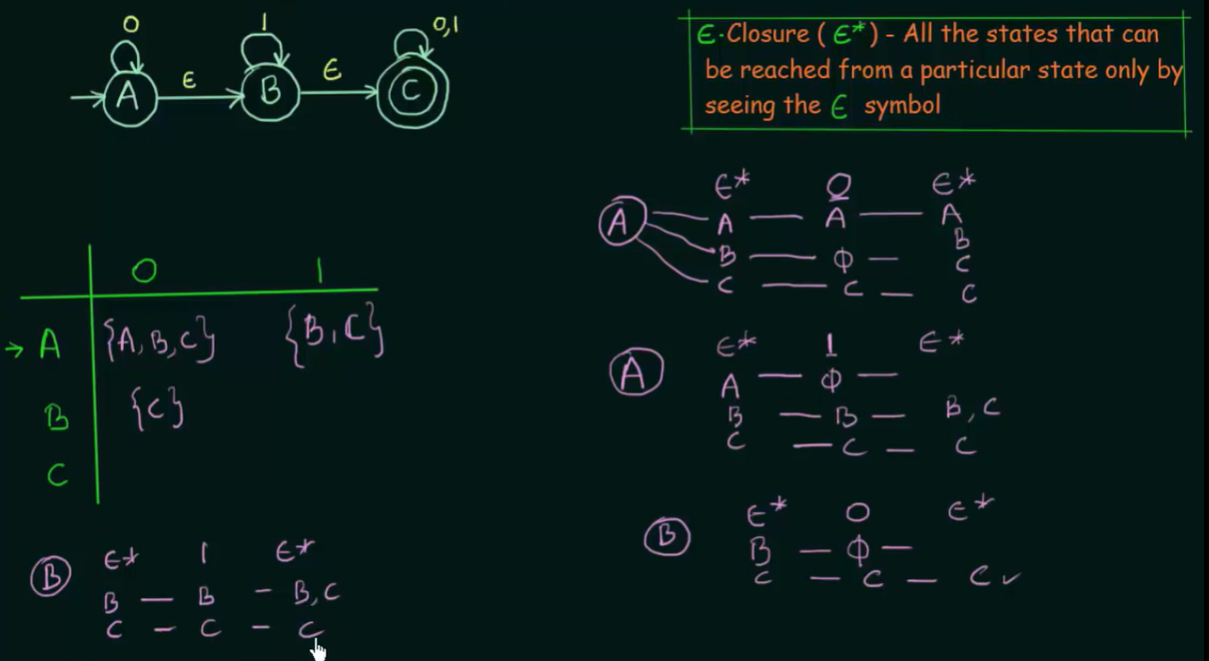 0 1 0,1
A ϵ B ϵ C
ϵ-Closure ( ϵ* ) - All the states that can
be reached from a particular state only by
seeing the ϵ symbol
ϵ* 0 ϵ*
A A — A — A
B
B — ϕ — C
C — C — C
0 1
→ A {A, B, C} {B, C}
B {C}
C
ϵ* 1 ϵ*
A A — ϕ —
B — B — B, C
C — C — C
ϵ* 0 ϵ*
B B — ϕ —
C — C — C ✓
ϵ* 1 ϵ*
B B — B — B, C
C — C — C